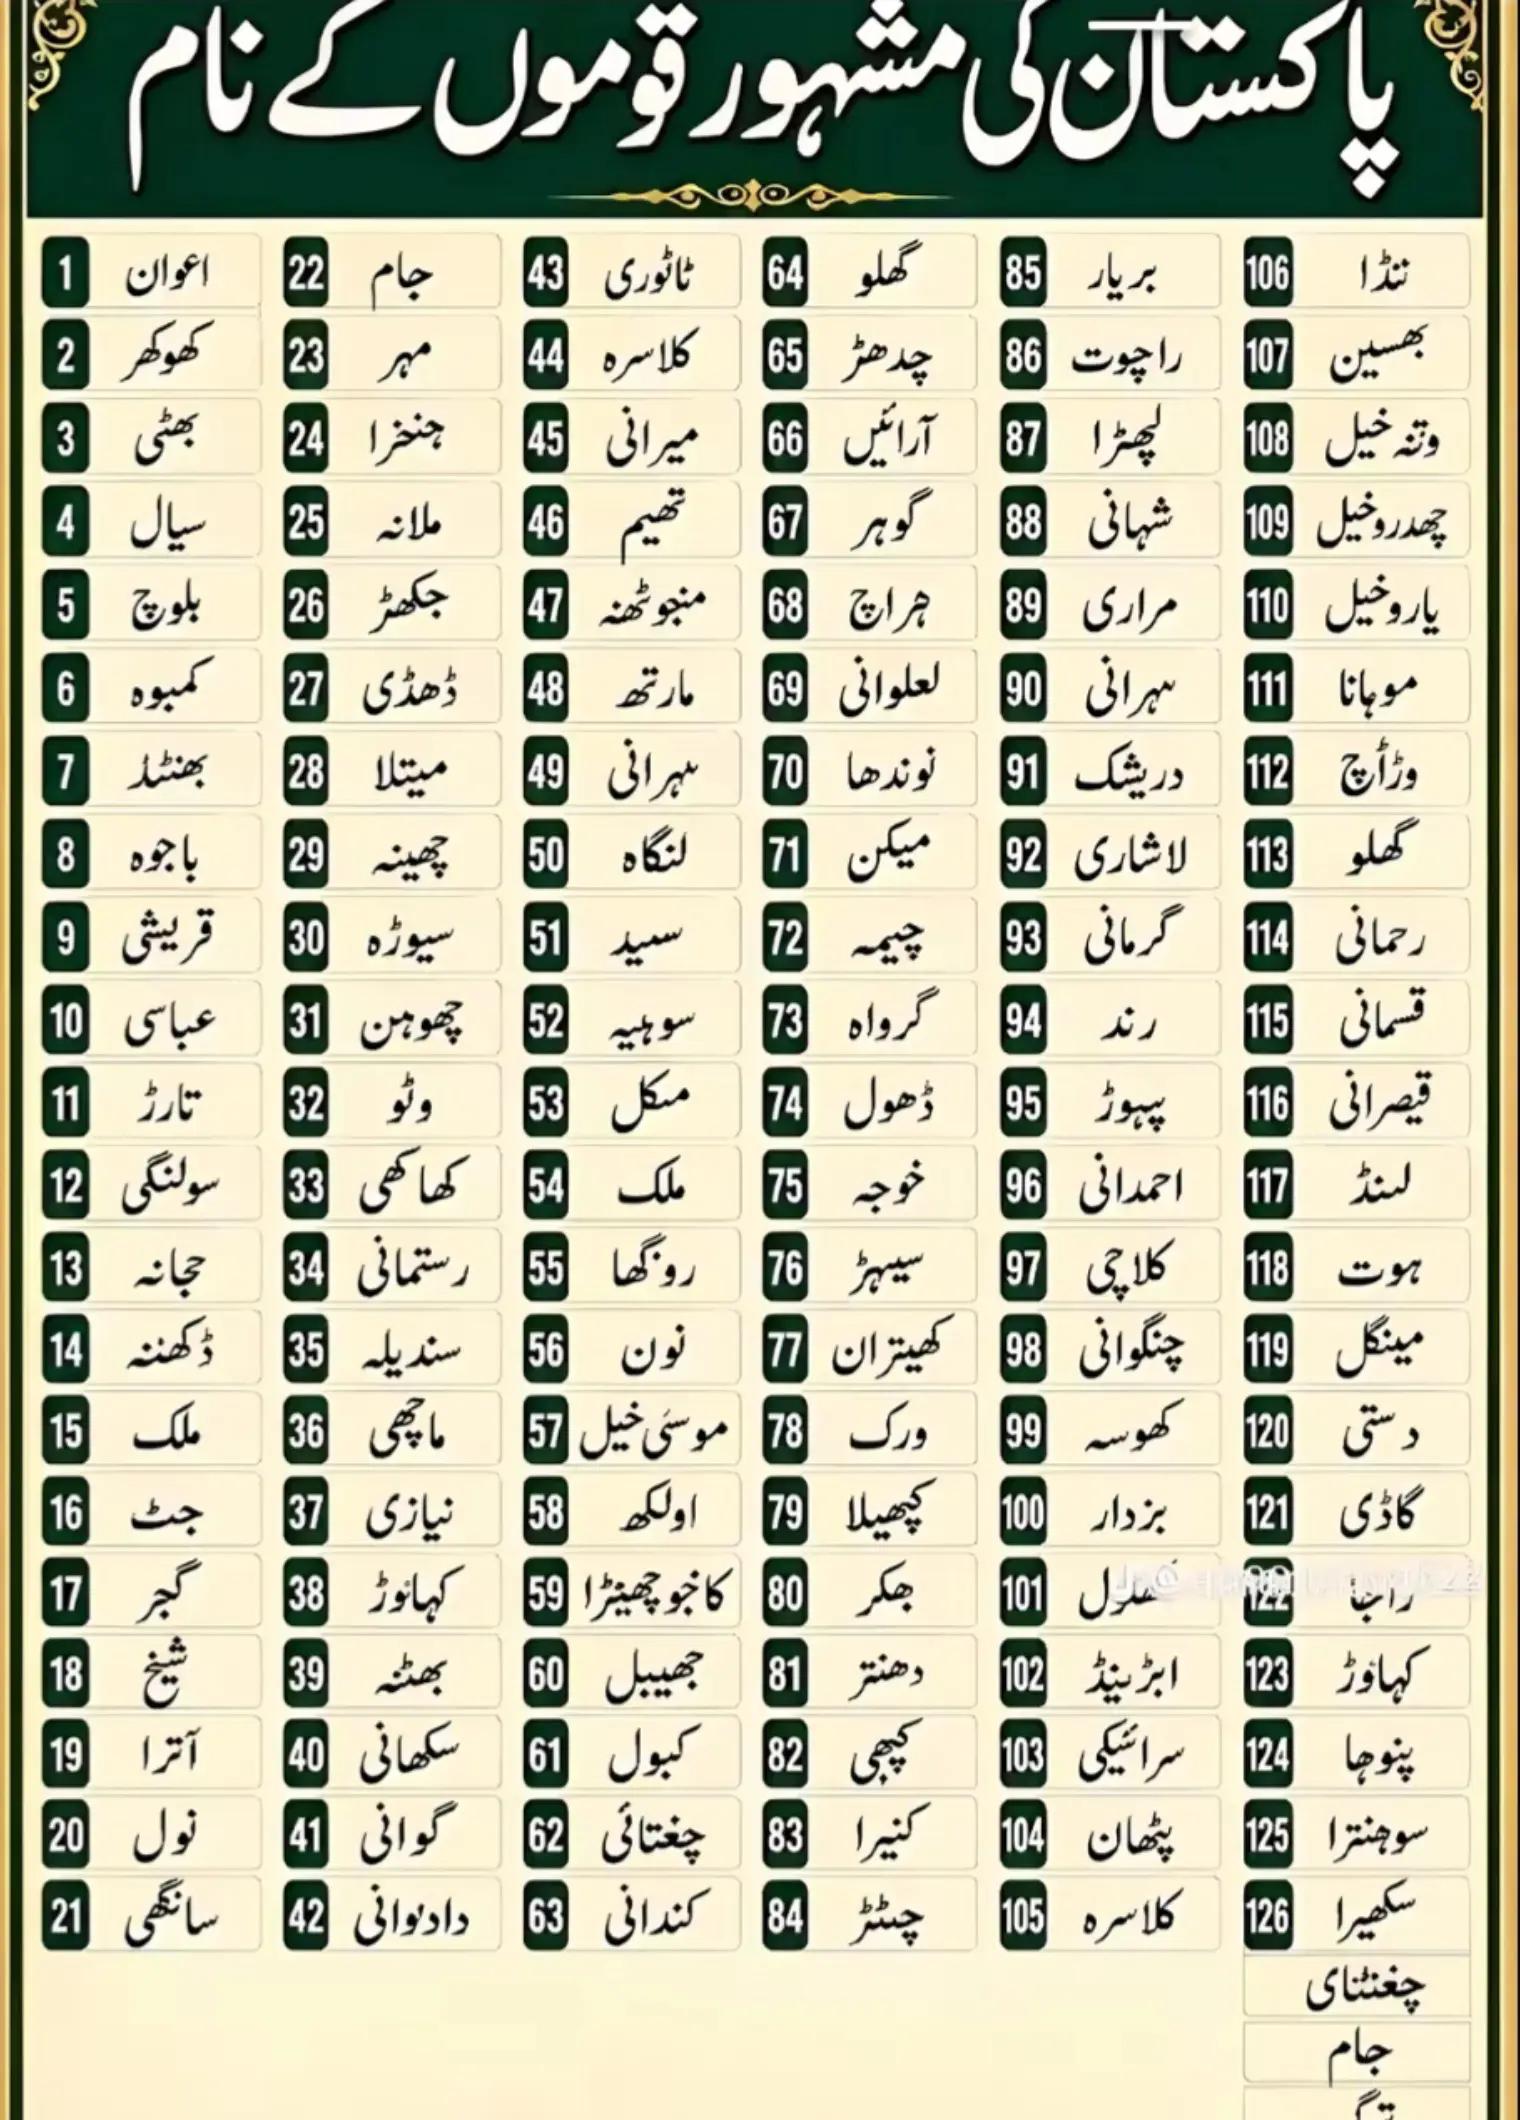 پاکستان کی مشہور قوموں کے نام
1 اعوان
2 کھوکھر
3 بھٹی
4 سیال
5 بلوچ
6 کمبوہ
7 بھنٹڈ
8 باجوہ
9 قریشی
10 عباسی
11 تارڑ
12 سولنگی
13 ججانہ
14 ڈکھنہ
15 ملک
16 جٹ
17 گجر
18 شیخ
19 آترا
20 نول
21 سانگھی
22 جام
23 مہر
24 جنخرا
25 ملانہ
26 جکھڑ
27 ڈھڈی
28 میتلا
29 چھینہ
30 سیوڑہ
31 چھوہن
32 وٹو
33 کھاکھی
34 رستمانی
35 سندیلہ
36 ماچھی
37 نیازی
38 کہاوڑ
39 بھٹہ
40 سکھانی
41 گوانی
42 دادوانی
43 ٹاٹوری
44 کلاسرہ
45 میرانی
46 تھیم
47 منجوٹھہ
48 مارتھ
49 سہرانی
50 لنگاہ
51 سید
52 سوہیہ
53 مکل
54 ملک
55 رونگھا
56 نون
57 موسیٰ خیل
58 اولکھ
59 کاخوچھینڑا
60 جھیبل
61 کبول
62 چغتائی
63 کندانی
64 گھلو
65 چدھڑ
66 آرائیں
67 گوہر
68 ہراچ
69 لعلوانی
70 نوندھا
71 میکن
72 چیمہ
73 گرواہ
74 ڈھول
75 خوجہ
76 سیہڑ
77 کھیتران
78 ورک
79 کچھیلا
80 بھکر
81 دھنتر
82 کچھی
83 کنیرا
84 چٹڑ
85 بریار
86 راچوت
87 لچھڑا
88 شہانی
89 مراری
90 سہرانی
91 دریشک
92 لاشاری
93 گرمانی
94 رند
95 پہوڑ
96 احمدانی
97 کلاچی
98 چنگوانی
99 کھوسہ
100 بزدار
101
102 ابڑینڈ
103 سرائیکی
104 پٹھان
105 کلاسرہ
106 تنڈا
107 بھسین
108 وتہ خیل
109 چھدروخیل
110 یاروخیل
111 موہانا
112 وڑائچ
113 گھلو
114 رحمانی
115 قسمانی
116 قیصرانی
117 لنڈ
118 ہوت
119 مینگل
120 دستی
121 گاڈی
122
123 کہاوڑ
124 پنوھا
125 سوھنترا
126 سکھیرا
چغنٹنای
جام